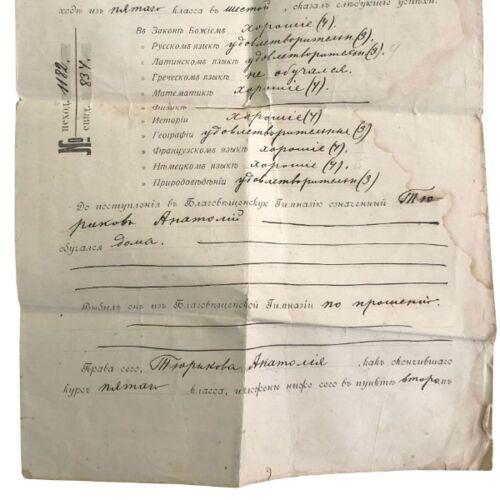 ходѣ изъ пятаго класса въ шестой, оказалъ слѣдующіе успѣхи:
Въ Законѣ Божіемъ хорошіе (4).
» Русскомъ языкѣ удовлетворительн (3).
» Латинскомъ языкѣ удовлетворительн (3).
» Греческомъ языкѣ не обучался.
» Математикѣ хорошіе (4).
» Физикѣ
» Исторіи хорошіе (4)
» Географіи удовлетворительные (3)
» Французскомъ языкѣ хорошіе (4).
» Нѣмецкомъ языкѣ хорошіе (4).
» Природовѣдѣніи удовлетворительн (3)
№ исход. 1182. свид. 834.
До поступленія въ Благовѣщенскую Гимназію означенный Тю-
риковъ Анатолій
обучался дома.
Выбылъ онъ изъ Благовѣщенской Гимназіи по прошенію.
Права сего, Тюрикова Анатолія, какъ окончившаго
курсъ пятаго класса, изложены ниже сего въ пунктѣ второмъ